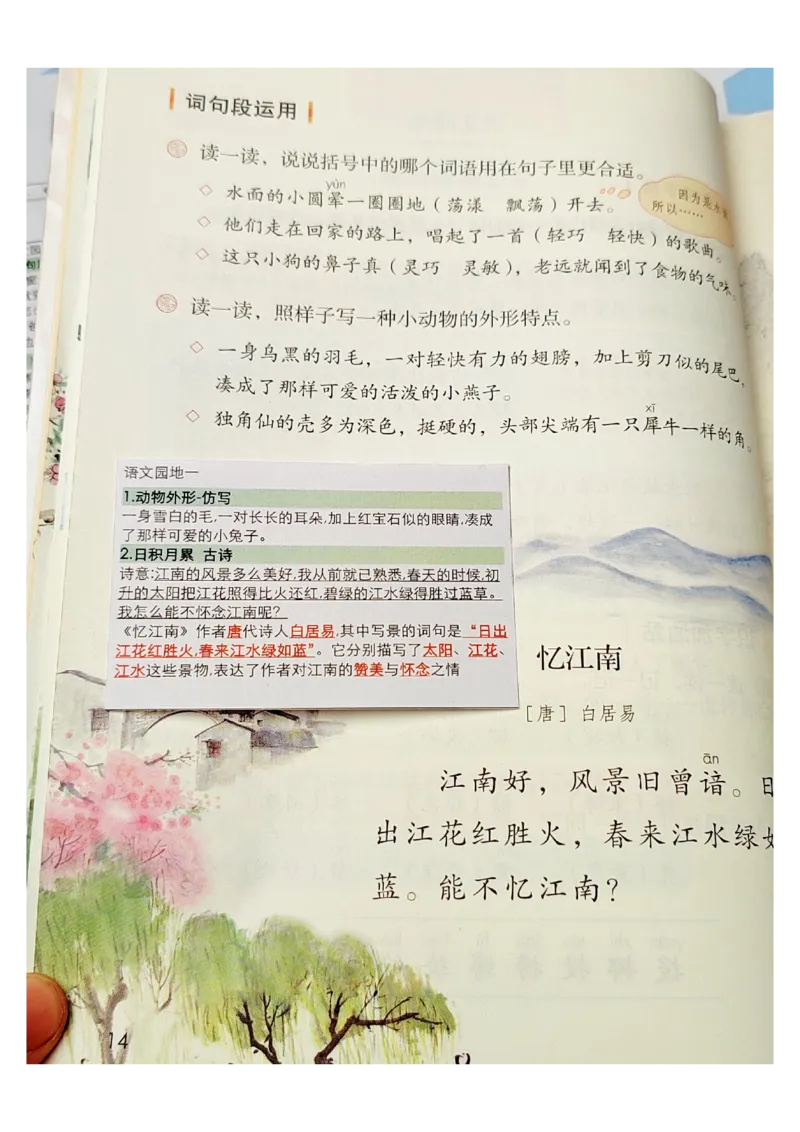 词句段运用
读一读，说说括号中的哪个词语用在句子里更合适。
yùn
水面的小圆晕一圈圈地（荡漾 飘荡）开去。
因为是水
所以……
他们走在回家的路上，唱起了一首（轻巧 轻快）的歌曲。
这只小狗的鼻子真（灵巧 灵敏），老远就闻到了食物的气味。
读一读，照样子写一种小动物的外形特点。
一身乌黑的羽毛，一对轻快有力的翅膀，加上剪刀似的尾巴，
凑成了那样可爱的活泼的小燕子。
xī
独角仙的壳多为深色，挺硬的，头部尖端有一只犀牛一样的角。
语文园地一
1.动物外形-仿写
一身雪白的毛,一对长长的耳朵,加上红宝石似的眼睛,凑成
了那样可爱的小兔子。
2.日积月累 古诗
诗意:江南的风景多么美好,我从前就已熟悉,春天的时候,初
升的太阳把江花照得比火还红,碧绿的江水绿得胜过蓝草。
我怎么能不怀念江南呢?
《忆江南》作者唐代诗人白居易,其中写景的词句是“日出
江花红胜火,春来江水绿如蓝”。它分别描写了太阳、江花、
江水这些景物,表达了作者对江南的赞美与怀念之情
忆江南
［唐］白居易
ān
江南好，风景旧曾谙。日
出江花红胜火，春来江水绿如
蓝。能不忆江南？
14